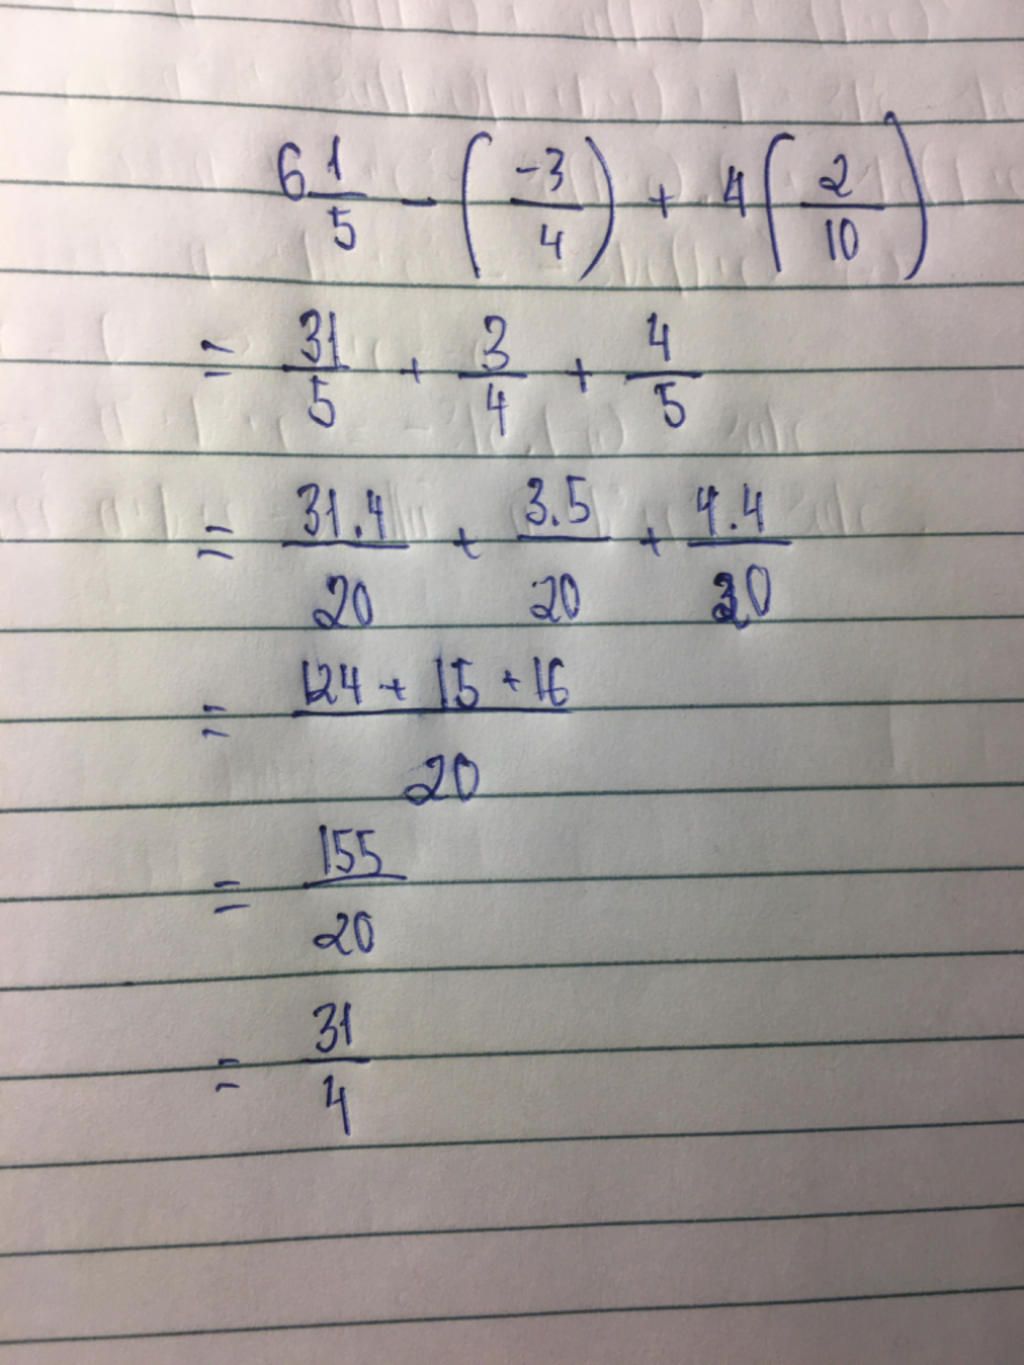 6 1/5 - (-3/4) + 4(2/10)
= 31/5 + 3/4 + 4/5
= 31.4/20 + 3.5/20 + 4.4/20
= 124 + 15 + 16/20
= 155/20
= 31/4